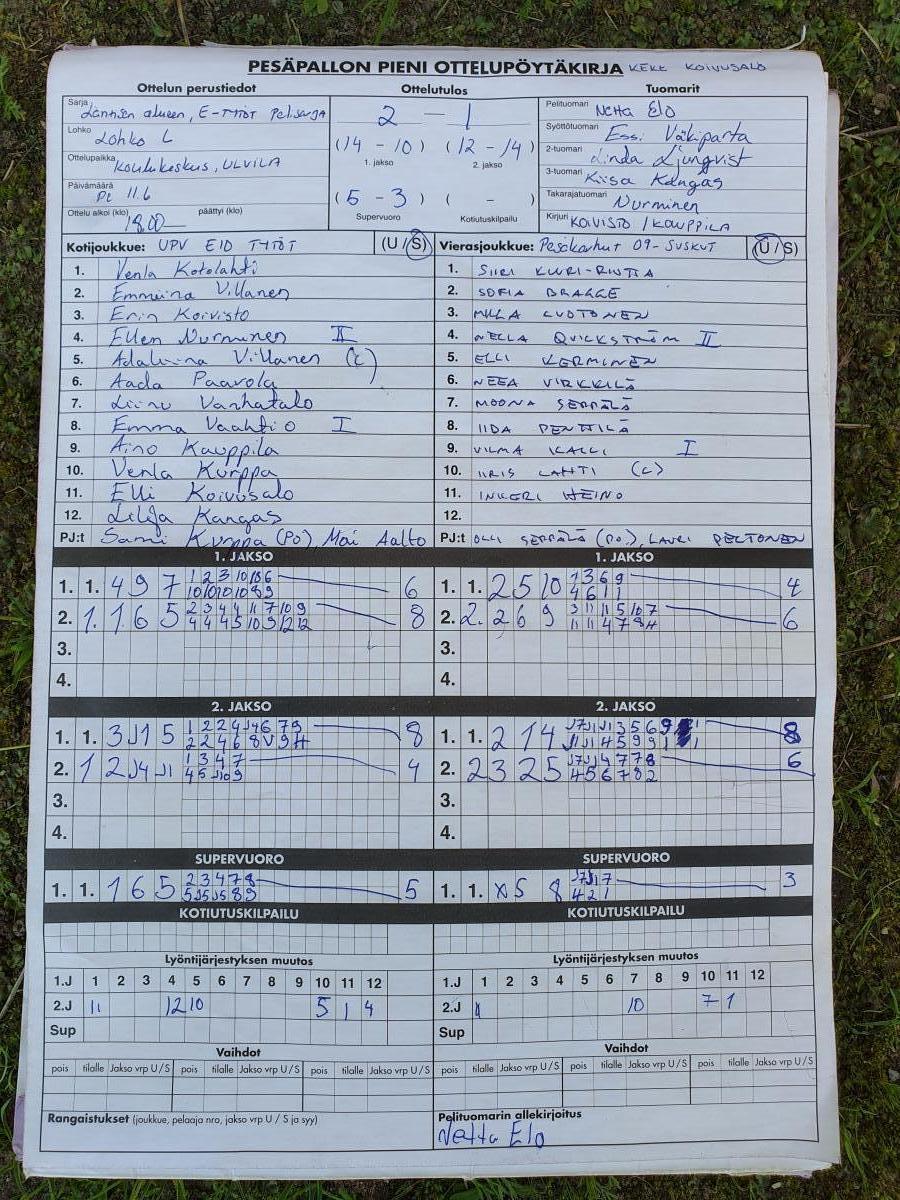 PESÄPALLON PIENI OTTELUPÖYTÄKIRJA KEKK KOIVUSALO
Ottelun perustiedot Ottelutulos Tuomarit
Sarja Läntisen alueen, E-TYTÖT Pelisarja
Lohko Lohko L
Ottelupaikka Koulukeskus, ULVILA
Päivämäärä Pe 11.6
Ottelu alkoi (klo) 18.00 päättyi (klo)
2 - 1
(14 - 10) (12 - 14)
1. jakso 2. jakso
(5 - 3) ( - )
Supervuoro Kotiutuskilpailu
Pelituomari Netta Elo
Syöttötuomari Essi Väkiparta
2-tuomari Linda Ljungvist
3-tuomari Kiisa Kangas
Takarajatuomari Nurminen
Kirjuri KOIVISTO / KAUPPILA
Kotijoukkue: UPV E10 TYTÖT (U / S)
1. Venla Kotolahti
2. Emmiina Villanen
3. Erin Koivisto
4. Ellen Nurminen II
5. Adalmina Villanen (C)
6. Aada Paavola
7. Liinu Vanhatalo
8. Emma Vaahtio I
9. Aino Kauppila
10. Venla Kurppa
11. Elli Koivusalo
12. Lilja Kangas
PJ:t Sami Kurppa (PO), Mai Aalto
Vierasjoukkue: Pesäkarhut 09-SUSKUT (U / S)
1. SIIRI KUURI-RIUTTA
2. SOFIA BRAGGE
3. MILLA LUOTONEN
4. NELLA QUICKSTRÖM II
5. ELLI KERMINEN
6. NEEA VIRKKILÄ
7. MOONA SEPPÄLÄ
8. IIDA PENTTILÄ
9. VILMA KALLI I
10. IIRIS LAHTI (C)
11. INKERI HEINO
12.
PJ:t OLLI SEPPÄLÄ (PO.), LAURI PELTONEN
1. JAKSO 1. JAKSO
1. 1. 4 9 7 1 2 3 10 10 6 6
10 10 10 10 8 9
2. 1. 1 6 5 2 3 4 4 11 7 10 9 8
4 4 4 5 10 9 12 12
3.
4.
1. 1. 2 5 10 1 3 6 9 4
4 6 1 1
2. 2. 2 6 9 3 11 11 5 10 7 6
11 11 4 7 8 H
3.
4.
2. JAKSO 2. JAKSO
1. 1. 3 J1 5 1 2 2 4 J4 6 7 9 8
2 2 4 6 8 V 9 H
2. 1 2 J4 J1 1 3 4 7 4
4 5 J10 9
3.
4.
1. 1. 2 1 4 J7 J1 J1 3 5 6 9 1 8
J1 J1 4 5 9 9 1 1
2. 2 3 2 5 J7 J1 4 7 7 8 6
4 5 6 7 8 2
3.
4.
SUPERVUORO SUPERVUORO
1. 1. 1 6 5 2 3 4 7 8 5
5 J5 J5 8 9
1. 1. X 5 8 J7 J1 7 3
4 2 1
KOTIUTUSKILPAILU KOTIUTUSKILPAILU
Lyöntijärjestyksen muutos Lyöntijärjestyksen muutos
1.J 1 2 3 4 5 6 7 8 9 10 11 12 1.J 1 2 3 4 5 6 7 8 9 10 11 12
2.J 11 12 10 5 1 4 2.J 11 10 7 1
Sup Sup
Vaihdot Vaihdot
pois tilalle Jakso vrp U / S pois tilalle Jakso vrp U / S pois tilalle Jakso vrp U / S pois tilalle Jakso vrp U / S pois tilalle Jakso vrp U / S pois tilalle Jakso vrp U / S
Rangaistukset (joukkue, pelaaja nro, jakso vrp U / S ja syy) Pelituomarin allekirjoitus
Netta Elo